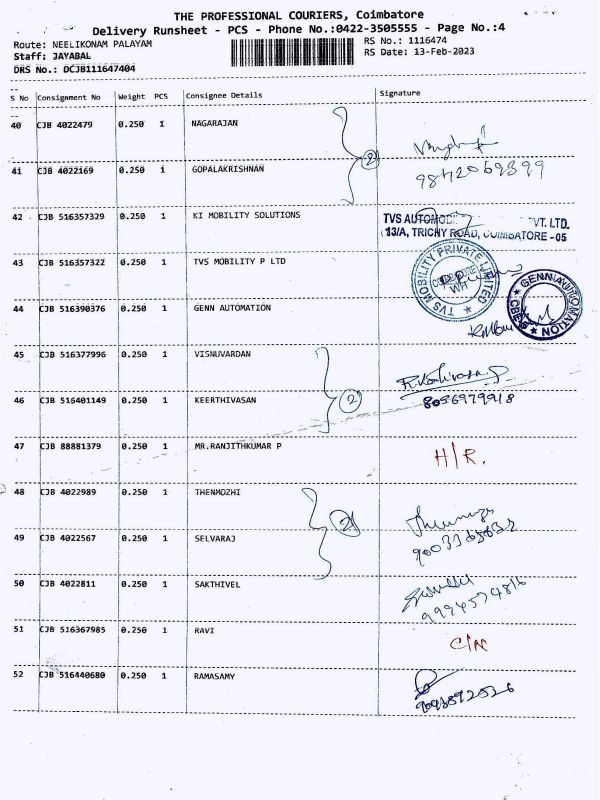 THE PROFESSIONAL COURIERS, Coimbatore
Delivery Runsheet - PCS - Phone No.:0422-3505555 - Page No.:4
Route: NEELIKONAM PALAYAM RS No.: 1116474
Staff: JAYABAL RS Date: 13-Feb-2023
DRS No.: DCJB111647404
S No Consignment No Weight PCS Consignee Details Signature
40 CJB 4022479 0.250 1 NAGARAJAN
41 CJB 4022169 0.250 1 GOPALAKRISHNAN 2
42 CJB 516357329 0.250 1 KI MOBILITY SOLUTIONS TVS VT. LTD.
13/A, TRICHY ROAD, COIMBATORE -05
43 CJB 516357322 0.250 1 TVS MOBILITY P LTD TVS MOBILITY PRIVATE LIMITED
44 CJB 516390376 0.250 1 GENN AUTOMATION GENN AUTOMATION
45 CJB 516377996 0.250 1 VISNUVARDAN
46 CJB 516401149 0.250 1 KEERTHIVASAN 2 8056979918
47 CJB 88881379 0.250 1 MR.RANJITHKUMAR P H/R.
48 CJB 4022989 0.250 1 THENMOZHI 2
49 CJB 4022567 0.250 1 SELVARAJ
50 CJB 4022811 0.250 1 SAKTHIVEL
51 CJB 516367985 0.250 1 RAVI
52 CJB 516440680 0.250 1 RAMASAMY